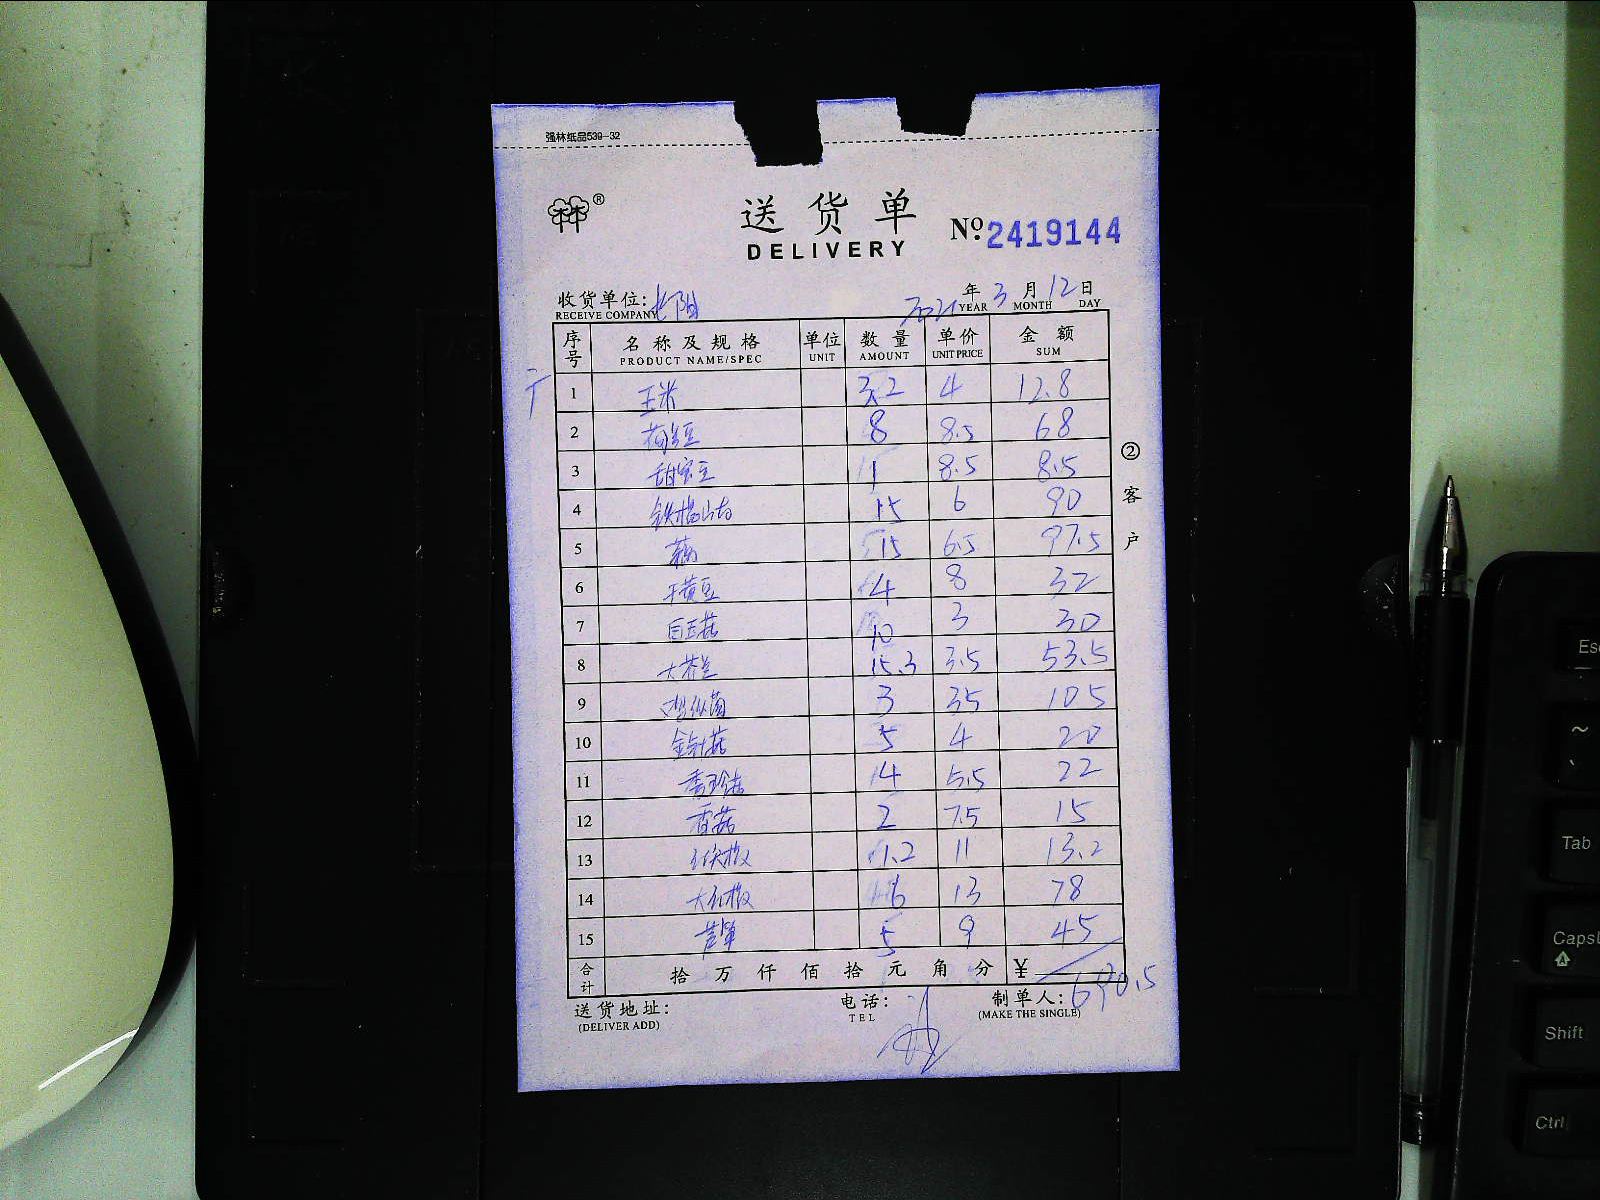 强林纸品539-32
®
送货单
DELIVERY
No. 2419144
收货单位: 长阳 2021 年 3 月 12 日
RECEIVE COMPANY YEAR MONTH DAY
序号 名称及规格 单位 数量 单价 金额
PRODUCT NAME/SPEC UNIT AMOUNT UNIT PRICE SUM
1 玉米 3.2 4 12.8
2 荷兰豆 8 8.5 68
3 甜宝豆 1 8.5 8.5
4 铁棍山药 15 6 90
5 藕 15 6.5 97.5
6 干黄豆 4 8 32
7 白玉菇 10 3 30
8 大芥兰 15.3 3.5 53.5
9 35 105 3
10 金针菇 5 4 20
11 秀珍菇 4 5.5 22
12 香菇 2 7.5 15
13 1.2 11 13.2
14 大红椒 6 13 78
15 芦笋 5 9 45
合计 拾万仟佰拾元角分 ¥ 690.5
送货地址: 电话: 制单人:
(DELIVER ADD) TEL (MAKE THE SINGLE)
②客户
Esc
~
、
Tab
Caps
Shift
Ctrl